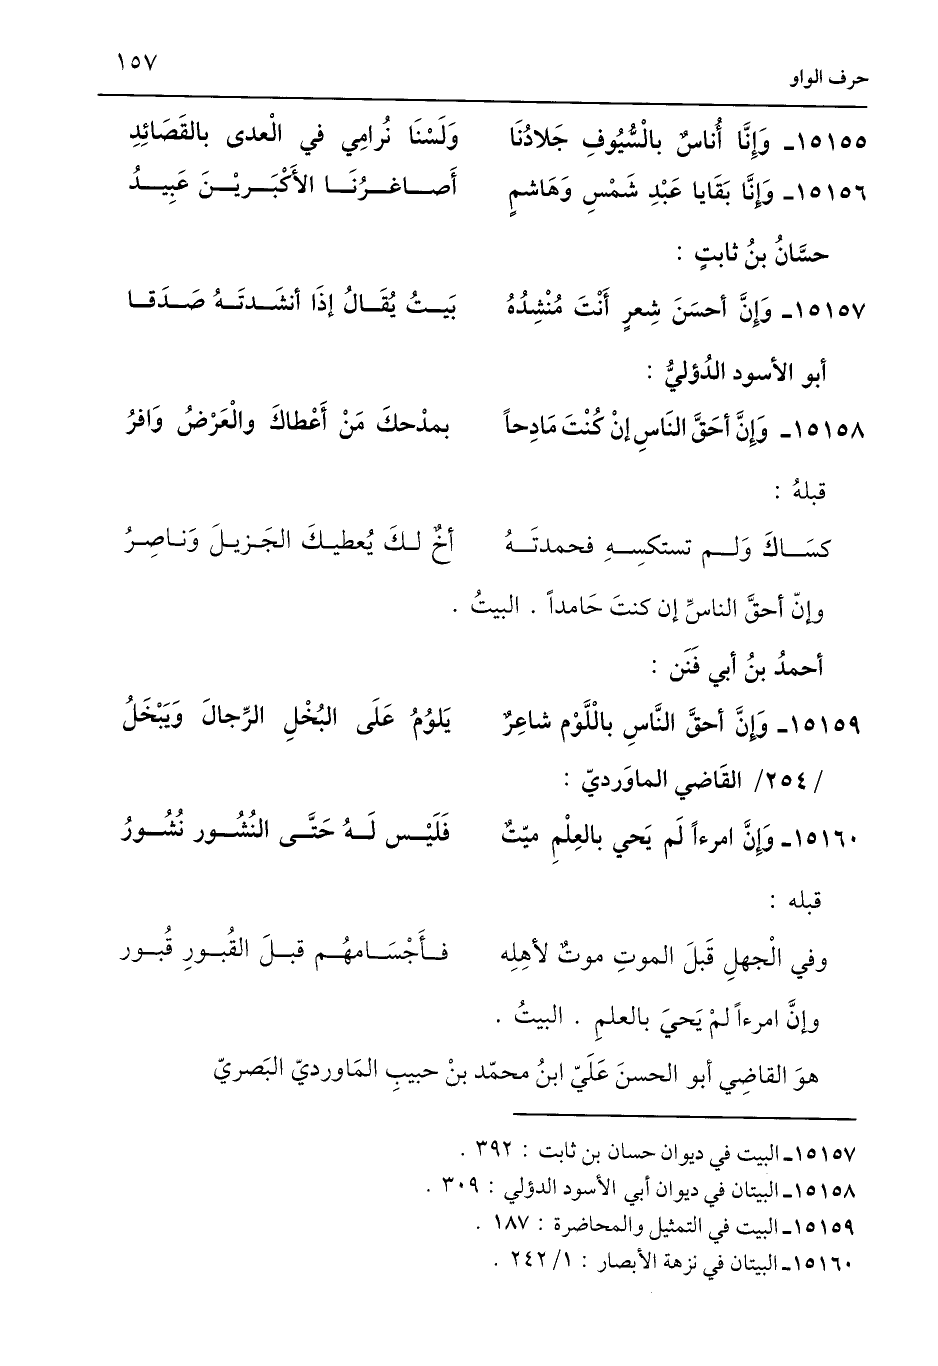 حرف الواو ١٥٧
١٥١٥٥ـ وَإِنَّا أُناسٌ بالْسُّيُوفِ جَلادُنَا وَلَسْنَا نُرامِي في الْعدى بالقَصَائِدِ
١٥١٥٦ـ وَإِنَّا بَقَايا عَبْدِ شَمْسٍ وَهَاشمٍ أَصـاغـرُنَـا الأَكْبَـريْـنَ عَبِيـدُ
حسَّانُ بنُ ثابتٍ :
١٥١٥٧ـ وَإِنَّ أحسَنَ شِعرٍ أَنْتَ مُنْشِدُهُ بَيـتُ يُقَـالُ إذَا أنشَـدتَـهُ صَـدَقـا
أبو الأسود الدُؤليُّ :
١٥١٥٨ـ وَإِنَّ أحَقَّ النَاسِ إنْ كُنْتَ مَادِحاً بمدْحكَ مَنْ أَعْطاكَ والْعَرْضُ وَافرُ
قبلهُ :
كسَـاكَ وَلـم تستكسِـهِ فحمدتَـهُ أخٌ لـكَ يُعطيـكَ الجَـزيـلَ وَنـاصِـرُ
وإنّ أحقَّ الناسِّ إن كنتَ حَامداً . البيتُ .
أحمدُ بنُ أبي فَنَن :
١٥١٥٩ـ وَإِنَّ أحقَّ النَّاسِ بالْلَّوْمِ شاعِرٌ يَلوُمُ عَلَى البُخْلِ الرِّجالَ وَيَبْخَلُ
/ ٢٥٤/ القَاضي الماوَرديّ :
١٥١٦٠ـ وَإِنَّ امرءاً لَم يَحي بالعِلْمِ ميّتٌ فَلَيْـس لَـهُ حَتَّـى النُشُـور نُشُـورُ
قبله :
وفي الْجهلِ قَبلَ الموتِ موتٌ لأهِلِه فـأَجْسَـامهُـم قبـلَ القُبـورِ قُبـور
وإنَّ امرءاً لمْ يَحيَ بالعلمِ . البيتُ .
هوَ القاضِي أبو الحسنَ عَلَيّ ابنُ محمّد بنْ حبيبِ المَاورديّ البَصريّ
١٥١٥٧ـ البيت في ديوان حسان بن ثابت : ٣٩٢ .
١٥١٥٨ـ البيتان في ديوان أبي الأسود الدؤلي : ٣٠٩ .
١٥١٥٩ـ البيت في التمثيل والمحاضرة : ١٨٧ .
١٥١٦٠ـ البيتان في نزهة الأبصار : ١/ ٢٤٢ .